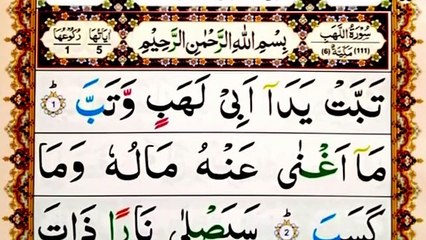 سُوْرَةُ اللَّهَبِ
(111) مَكِّيَّةٌ (6)
بِسْمِ اللهِ الرَّحْمٰنِ الرَّحِيْمِ
اٰيَاتُهَا 5
رُكُوْعُهَا 1
تَبَّتْ يَدَآ اَبِيْ لَهَبٍ وَّتَبَّ ۞ؕ ١
مَآ اَغْنٰى عَنْهُ مَالُهٗ وَمَا
كَسَبَ ؕ ٢ سَيَصْلٰى نَارًا ذَاتَ